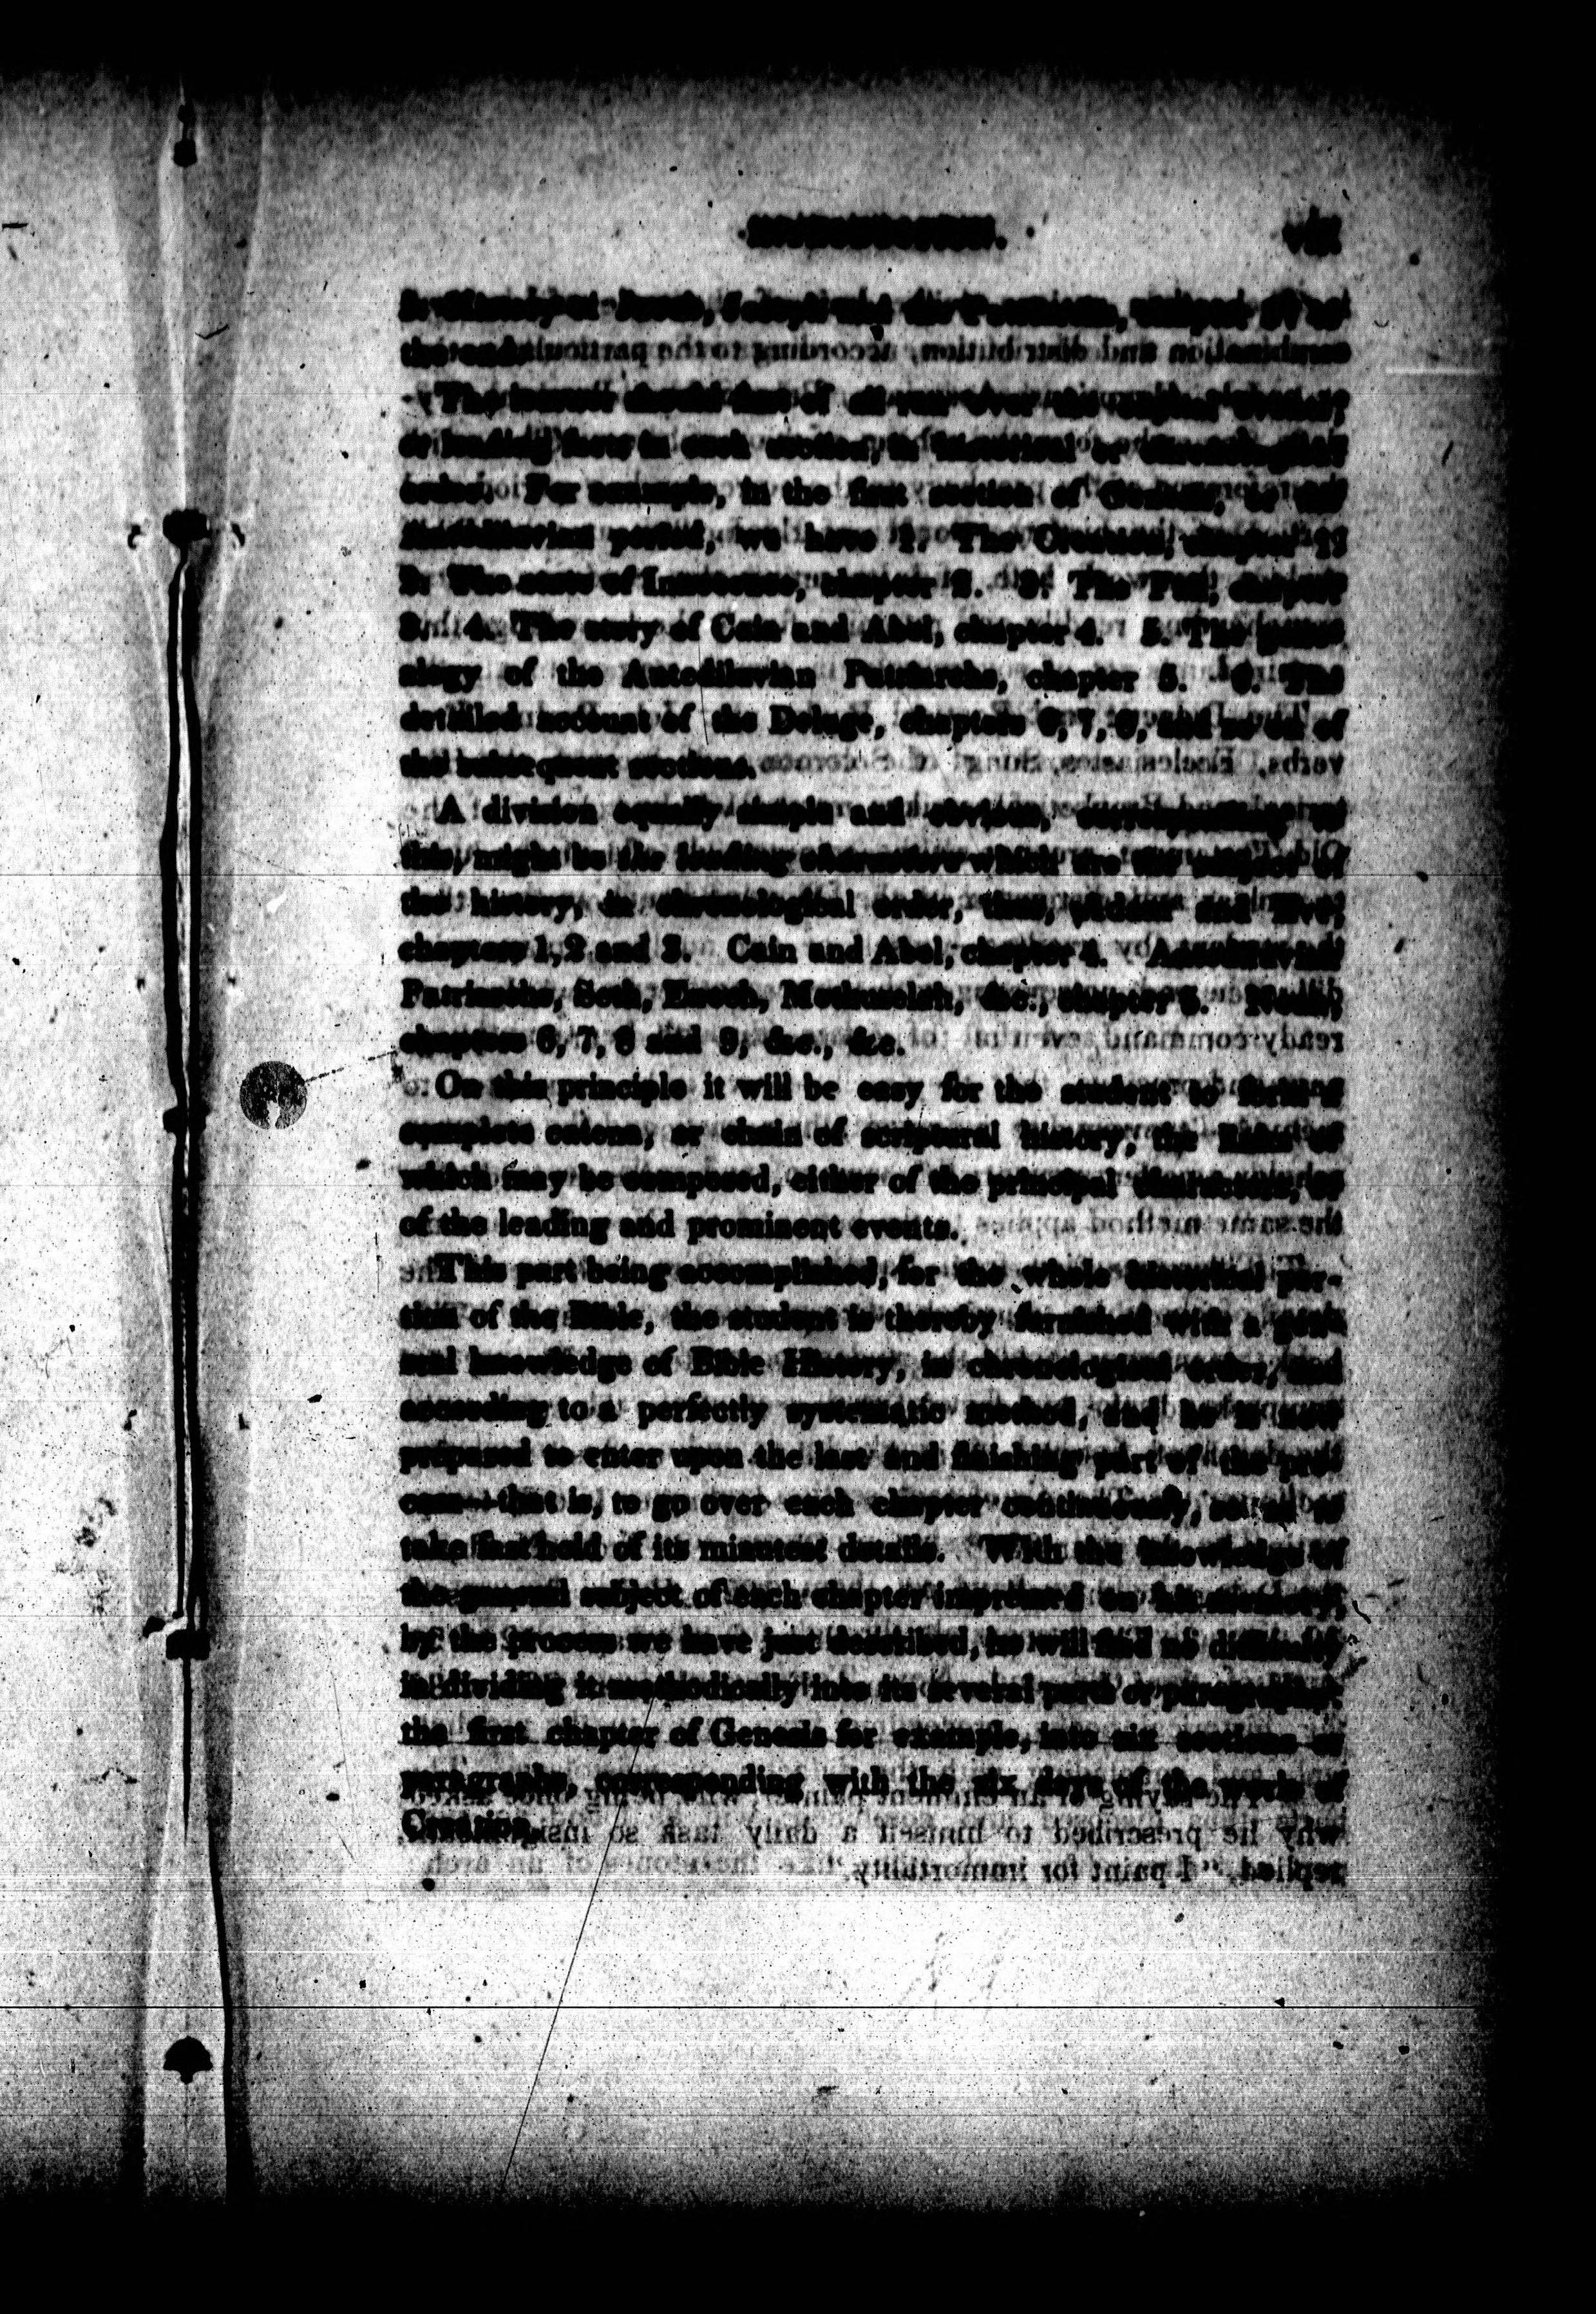 INTRODUCTION. vii
the end.
The learner should first of all run over the
or leading facts in each section, in historical or chronological
order. For example, in the first section of Genesis, or the
Antediluvian period, we have 1. The Creation, chapter 1;
2. The state of Innocence, chapter 2. 3. The Fall, chapter
3. 4. The story of Cain and Abel, chapter 4. 5. The genea-
alogy of the Antediluvian Patriarchs, chapter 5. 6. The
detailed account of the Deluge, chapters 6, 7, 8, and so on of
the subsequent sections.
A division equally simple and obvious, corresponding to
this, might be the leading characters which are the subject of
the history, in chronological order, thus, Adam and Eve,
chapters 1, 2 and 3. Cain and Abel, chapter 4. Antediluvian
Patriarchs, Seth, Enoch, Methuselah, &c., chapter 5. Noah,
chapters 6, 7, 8 and 9, &c., &c.
On this principle it will be easy for the student to form a
complete catena, or chain of scriptural history, the links of
which may be composed, either of the principal characters, or
of the leading and prominent events.
This part being accomplished, for the whole historical por-
tion of the Bible, the student is thereby furnished with a gen-
eral knowledge of Bible History, in chronological order, and
according to a perfectly systematic method, and he is now
prepared to enter upon the last and finishing part of the pro-
cess—that is, to go over each chapter continuously, so as to
take fast hold of its minutest details. With the knowledge of
the general subject of each chapter impressed on his memory,
by the process we have just described, he will find no difficulty
in dividing it methodically into its several parts or paragraphs,
the first chapter of Genesis for example, into six sections or
paragraphs, corresponding with the six days of the work of
Creation.